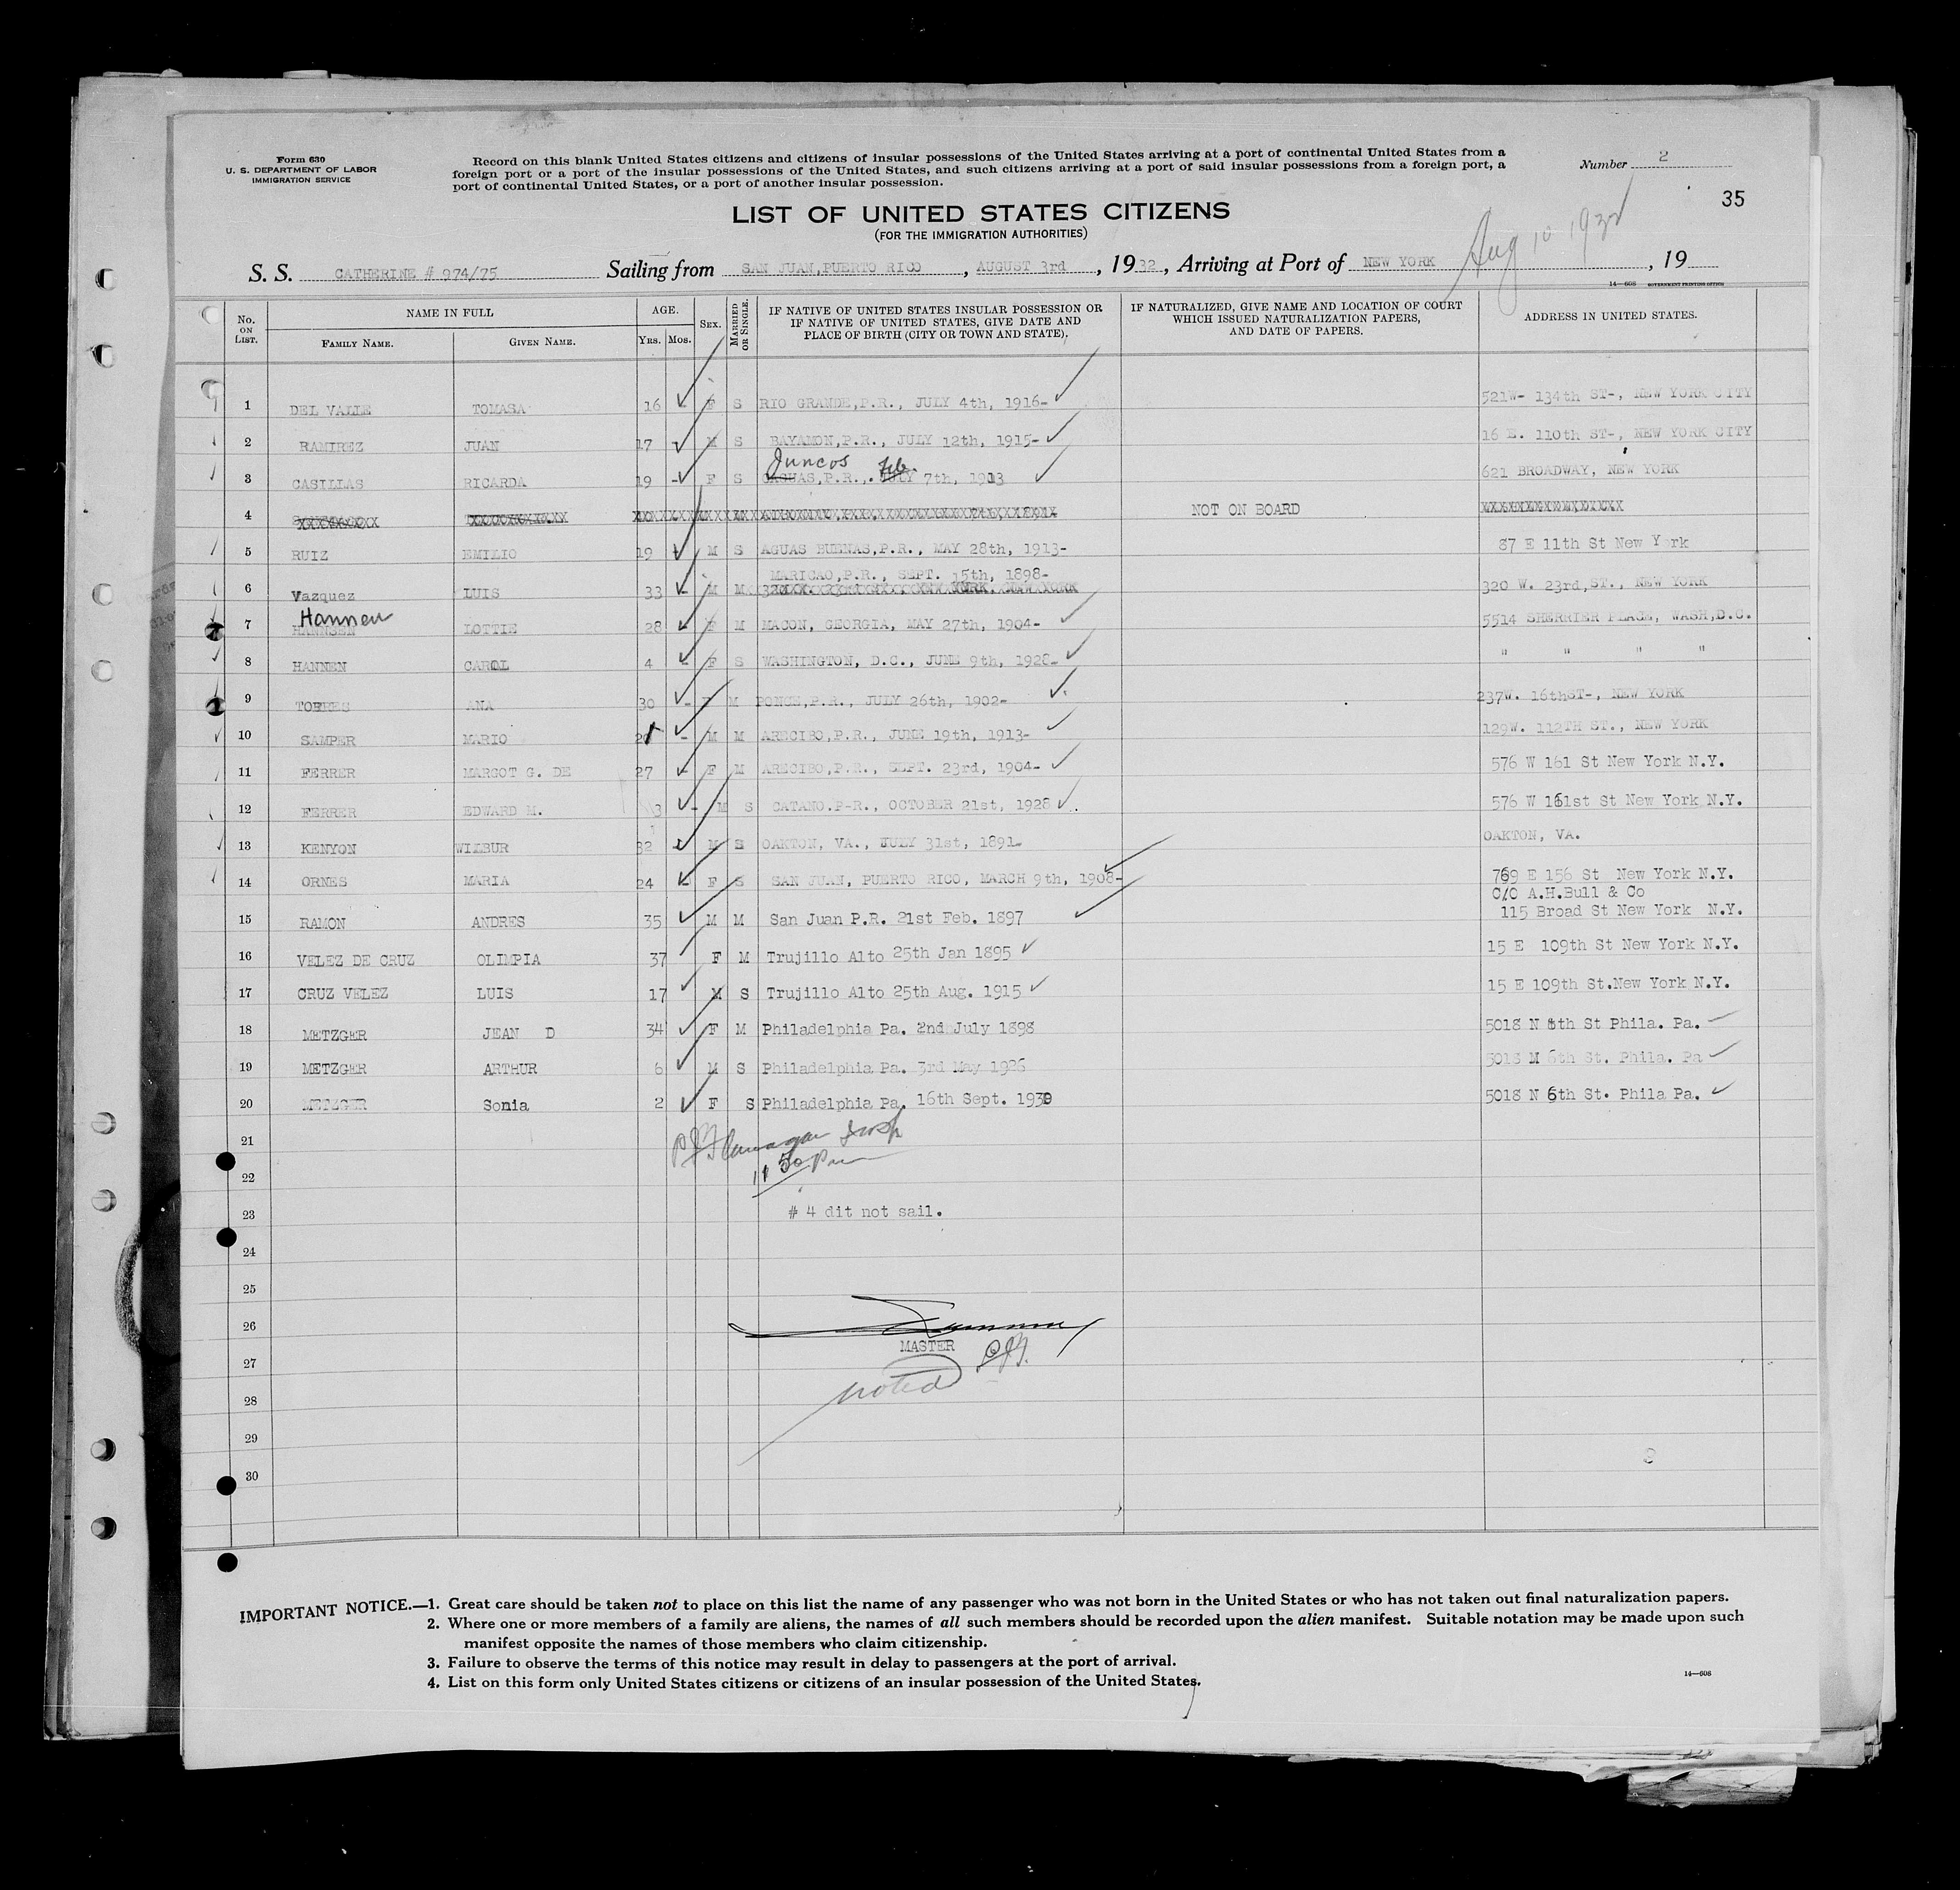 Form 630
U. S. DEPARTMENT OF LABOR
IMMIGRATION SERVICE
Record on this blank United States citizens and citizens of insular possessions of the United States arriving at a port of continental United States from a
foreign port or a port of the insular possessions of the United States, and such citizens arriving at a port of said insular possessions from a foreign port, a
port of continental United States, or a port of another insular possession.
Number 2
35
LIST OF UNITED STATES CITIZENS
(FOR THE IMMIGRATION AUTHORITIES)
Aug 10 1932
S. S. CATHERINE # 974/75 Sailing from SAN JUAN, PUERTO RICO, AUGUST 3rd, 1932, Arriving at Port of NEW YORK, 19
14—608 GOVERNMENT PRINTING OFFICE
No. ON LIST. NAME IN FULL AGE. SEX. MARRIED OR SINGLE. IF NATIVE OF UNITED STATES INSULAR POSSESSION OR IF NATIVE OF UNITED STATES, GIVE DATE AND PLACE OF BIRTH (CITY OR TOWN AND STATE). IF NATURALIZED, GIVE NAME AND LOCATION OF COURT WHICH ISSUED NATURALIZATION PAPERS, AND DATE OF PAPERS. ADDRESS IN UNITED STATES.
FAMILY NAME. GIVEN NAME. YRS. MOS.
1 DEL VALLE TOMASA 16 - F S RIO GRANDE,P.R., JULY 4th, 1916- 521W- 134th ST-, NEW YORK CITY
2 RAMIREZ JUAN 17 - M S BAYAMON,P.R., JULY 12th, 1915- 16 E. 110th ST-, NEW YORK CITY
Juncos Feb.
3 CASILLAS RICARDA 19 - F S CAGUAS,P.R., JULY 7th, 1913 621 BROADWAY, NEW YORK
4 NOT ON BOARD
5 RUIZ EMILIO 19 - M S AGUAS BUENAS,P.R., MAY 28th, 1913- 87 E 11th St New York
MARICAO,P.R., SEPT. 15th, 1898-
6 Vazquez LUIS 33 - M M 320 W. 23rd,ST., NEW YORK
Hannen
7 HANNSEN LOTTIE 28 - F M MACON, GEORGIA, MAY 27th, 1904- 5514 SHERRIER PLACE, WASH,D.C.
8 HANNEN CAROL 4 - F S WASHINGTON, D.C., JUNE 9th, 1928- " " " "
9 TORRES ANA 30 - F M PONCE,P.R., JULY 26th, 1902- 237W. 16thST-, NEW YORK
10 SAMPER MARIO - M M ARECIBO,P.R., JUNE 19th, 1913- 129W. 112TH ST., NEW YORK
11 FERRER MARGOT G. DE 27 - F M ARECIBO,P.R., SEPT. 23rd, 1904- 576 W 161 St New York N.Y.
12 FERRER EDWARD M. 3 - M S CATANO.P-R., OCTOBER 21st, 1928 576 W 161st St New York N.Y.
13 KENYON WILBUR 32 - M S OAKTON, VA., JULY 31st, 1891- OAKTON, VA.
14 ORNES MARIA 24 - F S SAN JUAN, PUERTO RICO, MARCH 9th, 1908- 769 E 156 St New York N.Y.
C/O A.H.Bull & Co
15 RAMON ANDRES 35 M M San Juan P.R. 21st Feb. 1897 115 Broad St New York N.Y.
16 VELEZ DE CRUZ OLIMPIA 37 F M Trujillo Alto 25th Jan 1895 15 E 109th St New York N.Y.
17 CRUZ VELEZ LUIS 17 M S Trujillo Alto 25th Aug. 1915 15 E 109th St.New York N.Y.
18 METZGER JEAN D 34 F M Philadelphia Pa. 2nd July 1898 5018 N 6th St Phila. Pa.
19 METZGER ARTHUR 6 M S Philadelphia Pa. 3rd May 1926 5018 M 6th St. Phila. Pa
20 METZGER Sonia 2 F S Philadelphia Pa. 16th Sept. 1930 5018 N 6th St. Phila Pa.
21 P J Flanagan Insp
22 11 50 Pm
23 # 4 dit not sail.
24
25
26
MASTER PJF.
27
noted
28
29
30
IMPORTANT NOTICE.—1. Great care should be taken not to place on this list the name of any passenger who was not born in the United States or who has not taken out final naturalization papers.
2. Where one or more members of a family are aliens, the names of all such members should be recorded upon the alien manifest. Suitable notation may be made upon such
manifest opposite the names of those members who claim citizenship.
3. Failure to observe the terms of this notice may result in delay to passengers at the port of arrival.
4. List on this form only United States citizens or citizens of an insular possession of the United States.
14—608